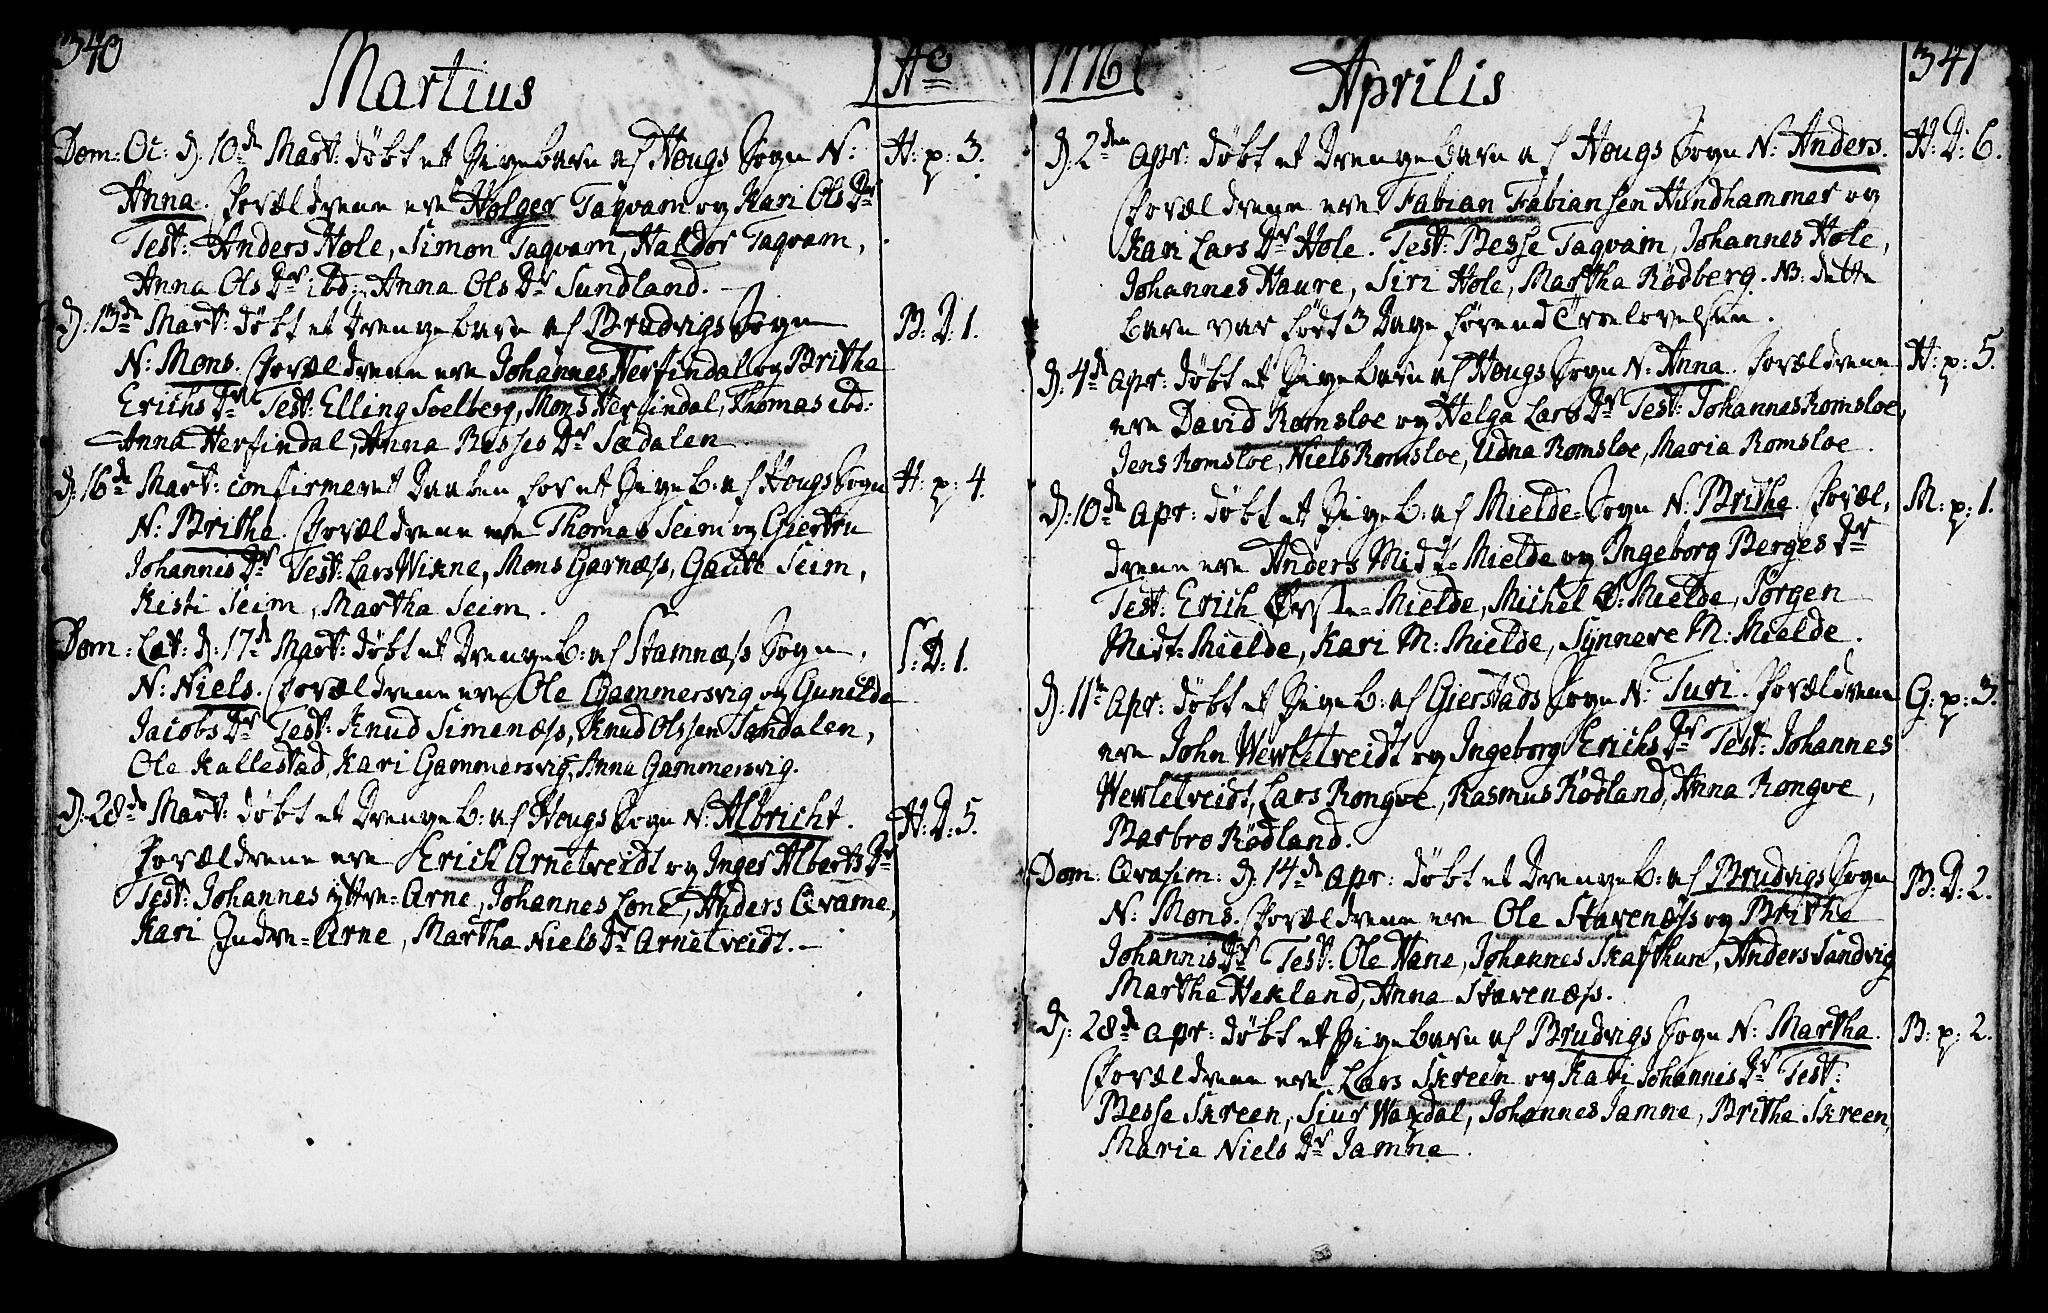 340
Martius
Ao
Dom: Oc: d: 10de Mart: døbt et Pigebarn af Hougs Sogn N:
H: p: 3.
Anna. Forældrene ere Holger Tagvam og Kari Ols Dr
Test: Anders Hole, Simon Tagvam, Haldor Tagvam,
Anna Ols Dr ibd:, Anna Ols Dr Sundland.
d: 13de Mart: døbt et Drengebarn af Brudvigs Sogn
B: D: 1.
N: Mons. Forældrene ere Johannes Herfindal og Britha
Erichs Dr Test: Elling Soelberg, Mons Herfindal, Thomas ibd:
Anna Herfindal, Anna Besses Dr Sædalen
d: 16de Mart: confirmeret Daaben for et Pige b: af Hougs Sogn
H: p: 4.
N: Britha. Forældrene ere Thomas Seim og Giertru
Johannis Dr Test: Lars Wikne, Mons Garnæss, Gaute Seim,
Kisti Seim, Martha Seim.
Dom: Læt: d: 17de Mart: døbt et Drenge b: af Stamnæss Sogn,
S: D: 1.
N: Niels. Forældrene ere Ole Gammersvig og Gunilde
Jacobs Dr Test: Knud Simenæss, Knud Olssen Sandalen,
Ole Kallestad, Kari Gammersvig, Anna Gammersvig.
d: 28de Mart: døbt et Drenge b: af Hougs Sogn N: Albricht.
H: D: 5.
Forældrene ere Erich Arnetveidt og Inger Alberts Dr
Test: Johannes yttre-Arne, Johannes Lone, Anders Qvame,
Kari Indre-Arne, Martha Niels Dr Arnetveidt.
1776
Aprilis
341
d: 2den Apr: døbt et Drengebarn af Hougs Sogn N: Anders.
H: D: 6.
Forældrene ere Fabian Fabiansen Hundhammer og
Kari Lars Dr Hole. Test: Besse Tagvam, Johannes Hole,
Johannes Haure, Siri Hole, Martha Rödberg. NB: dette
barn var født 3 Dage førend Troelovelsen.
d: 4de Apr: døbt et Pigebarn af Hougs Sogn N: Anna. Forældrene
H: p: 5.
ere David Romsloe og Helga Lars Dr Test: Johannes Romsloe,
Jens Romsloe, Niels Romsloe, Udna Romsloe, Maria Romsloe.
d: 10de Apr: døbt et Pige b: af Mielde-Sogn N: Britha. Foræl-
M: p: 1.
drene ere Anders Midt-Mielde og Ingeborg Berges Dr
Test: Erich Øvste-Mielde, Michel Ø: Mielde, Jörgen
Midt-Mielde, Kari M: Mielde, Synneve M: Mielde.
d: 11te Apr: døbt et Pige b: af Gierstads Sogn N: Turi. Forældrene
G: p: 3.
ere John Wevletveidt og Ingeborg Erichs Dr Test: Johannes
Wevletveidt, Lars Rongve, Rasmus Rödland, Anna Rongve,
Barbro Rödland.
Dom: Qvasim: d: 14de Apr: døbt et Drenge b: af Brudvigs Sogn
B: D: 2.
N: Mons. Forældrene ere Ole Stavenæss og Britha
Johannis Dr Test: Ole Hane, Johannes Skafthun, Anders Sandvig
Martha Hekland, Anna Stavenæss.
d: 28de Apr: døbt et Pigebarn af Brudvigs Sogn N: Martha.
B: p: 2.
Forældrene ere Lars Skreen og Kari Johannis Dr Test:
Besse Skreen, Siur Waxdal, Johannes Jamne, Britha Skreen,
Marie Niels Dr Jamne.